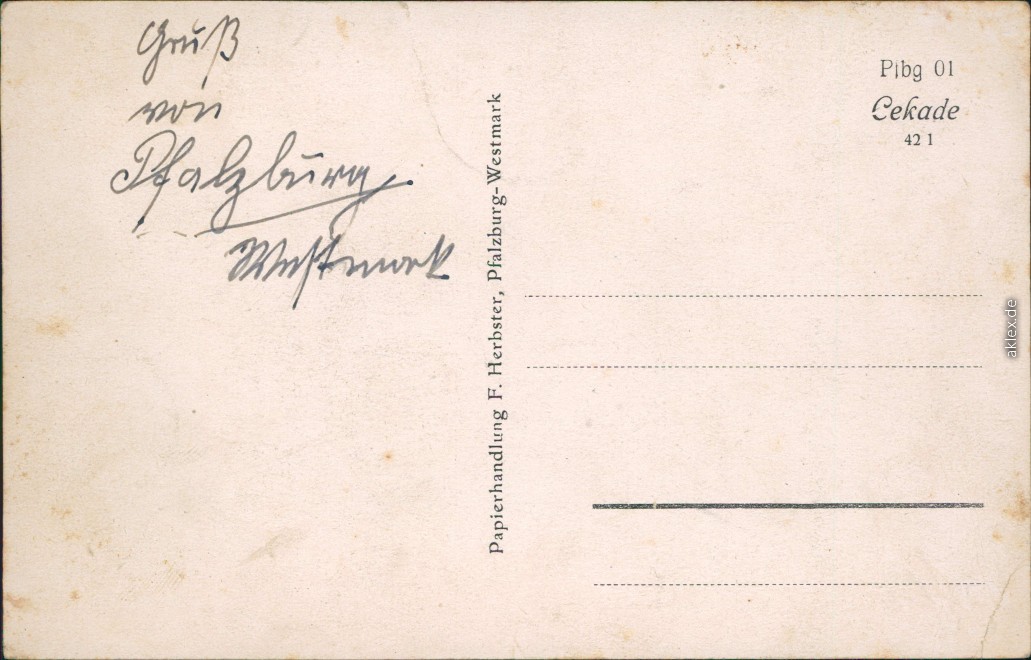 Gruß
von
Pfalzburg.
Westmark
Papierhandlung F. Herbster, Pfalzburg-Westmark
Pfbg 01
Cekade
42 1
aklex.de